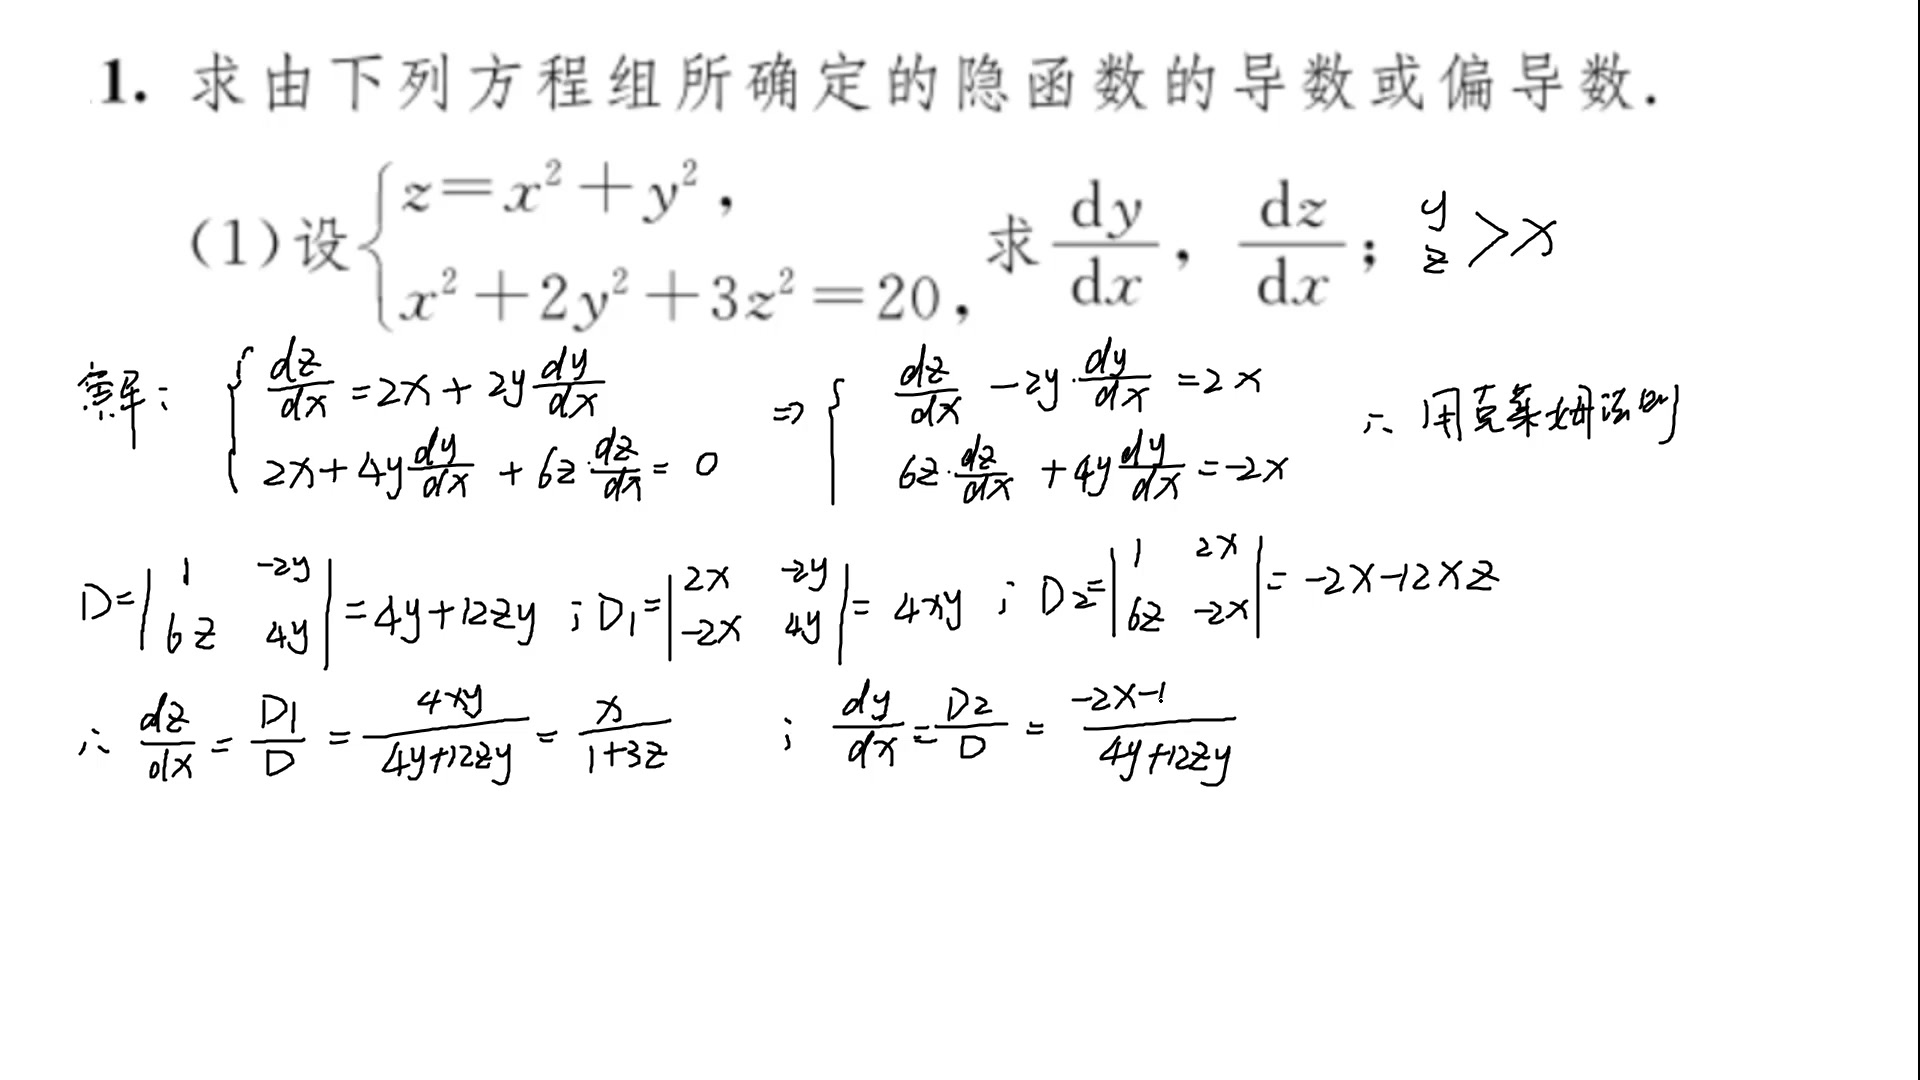 1. 求由下列方程组所确定的隐函数的导数或偏导数.
(1)设{z=x²+y², x²+2y²+3z²=20, 求 dy/dx, dz/dx; y z > x
解: {dz/dx=2x+2y dy/dx ⇒ {dz/dx -2y·dy/dx =2x ∴ 用克莱姆法则
2x+4y dy/dx +6z·dz/dx= 0 6z·dz/dx +4y dy/dx=-2x
D=|1 -2y 6z 4y|=4y+12zy ; D1=|2x -2y -2x 4y|= 4xy ; D2=|1 2x 6z -2x|= -2x-12xz
∴ dz/dx = D1/D = 4xy/4y+12zy = x/1+3z ; dy/dx=D2/D = -2x-1/4y+12zy